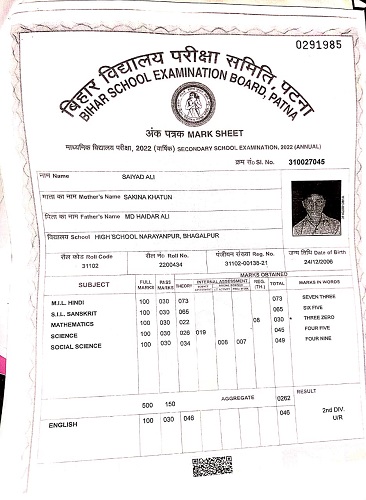 0291985
बिहार विद्यालय परीक्षा समिति, पटना
BIHAR SCHOOL EXAMINATION BOARD, PATNA
अंक पत्रक MARK SHEET
माध्यमिक विद्यालय परीक्षा, 2022 (वार्षिक) SECONDARY SCHOOL EXAMINATION, 2022 (ANNUAL)
क्रम सं० Sl. No. 310027045
नाम Name SAIYAD ALI
माता का नाम Mother's Name SAKINA KHATUN
पिता का नाम Father's Name MD HAIDAR ALI
विद्यालय School HIGH SCHOOL NARAYANPUR, BHAGALPUR
रौल कोड Roll Code रौल नं० Roll No. पंजीयन संख्या Reg. No. जन्म तिथि Date of Birth
31102 2200434 31102-00138-21 24/12/2006
MARKS OBTAINED
SUBJECT FULL MARKS PASS MARKS THEORY INTERNAL ASSESSMENT REG. (TH.) TOTAL MARKS IN WORDS
M.I.L. HINDI 100 030 073 073 SEVEN THREE
S.I.L. SANSKRIT 100 030 065 065 SIX FIVE
MATHEMATICS 100 030 022 08 030 * THREE ZERO
SCIENCE 100 030 026 019 045 FOUR FIVE
SOCIAL SCIENCE 100 030 034 008 007 049 FOUR NINE
500 150 AGGREGATE 0262 RESULT
ENGLISH 100 030 046 046 2nd DIV.
U/R